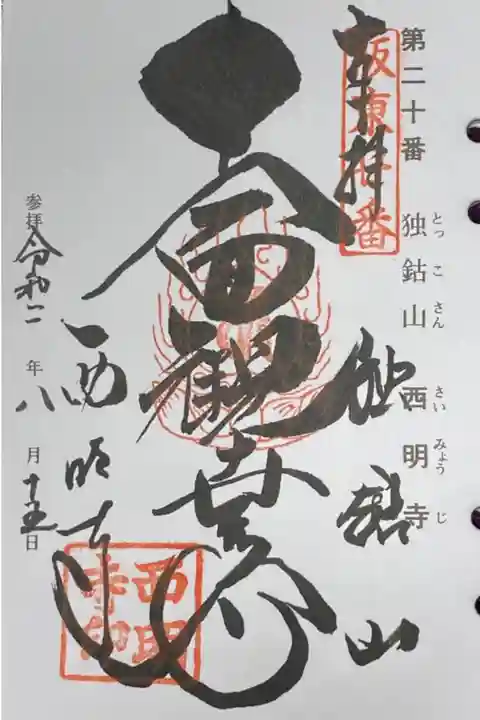 第二十番 独鈷山 西明寺
とっこさん さいみょうじ
奉拝
坂東廿番
独鈷山
十一面観世音
西明寺
西明寺印
参拝 令和二年八月十五日